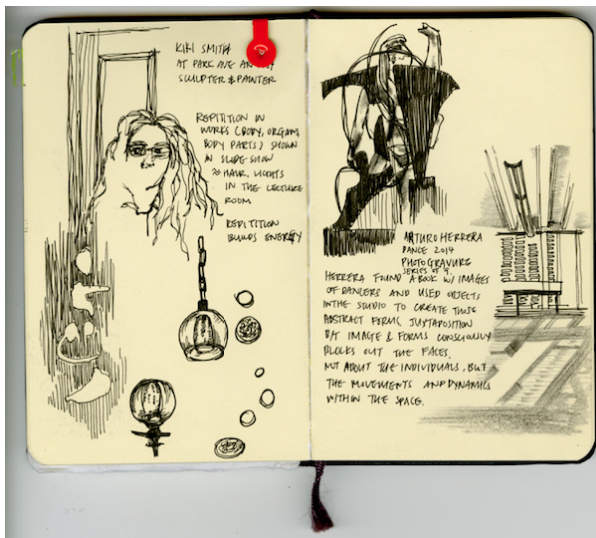 KIKI SMITH
AT PARK AVE
SCULPTER & PAINTER
REPITITION IN
WORKS (BODY, ORGANS
BODY PARTS) SHOWN
IN SLIDE SHOW
HAIR, LIGHTS
IN THE LECTURE
ROOM
REPITITION
BUILDS ENERGY
ARTURO HERRERA
DANCE 2014
PHOTOGRAVURE
SERIES OF 9.
HERRERA FOUND A BOOK W/ IMAGES
OF DANCERS AND USED OBJECTS
IN THE STUDIO TO CREATE THIS
ABSTRACT FORM. JUXTAPOSITION
B/T IMAGE & FORMS CONSCIOUSLY
BLOCKS OUT THE FACES.
NOT ABOUT THE INDIVIDUALS, BUT
THE MOVEMENTS AND DYNAMICS
WITHIN THE SPACE.